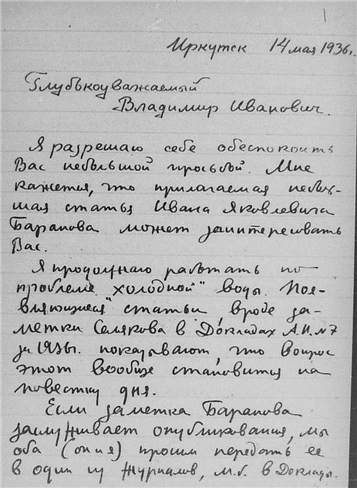 1
Иркутск 14 мая 1936г.
Глубокоуважаемый
Владимир Иванович.
Я разрешаю себе обеспокоить
Вас небольшой просьбой. Мне
кажется, что прилагаемая неболь-
шая статья Ивана Яковлевича
Баранова может заинтересовать
Вас.
Я продолжаю работать по
проблеме „холодной" воды. Поя-
вляющиеся статьи, вроде за-
метки Селякова в Докладах А.Н. №7
за 1936г. показывают, что вопрос
этот вообще становится на
повестку дня.
Если заметка Баранова
заслуживает опубликования, мы
оба (он и я) просим передать ее
в один из журналов, м.б. в Доклады.